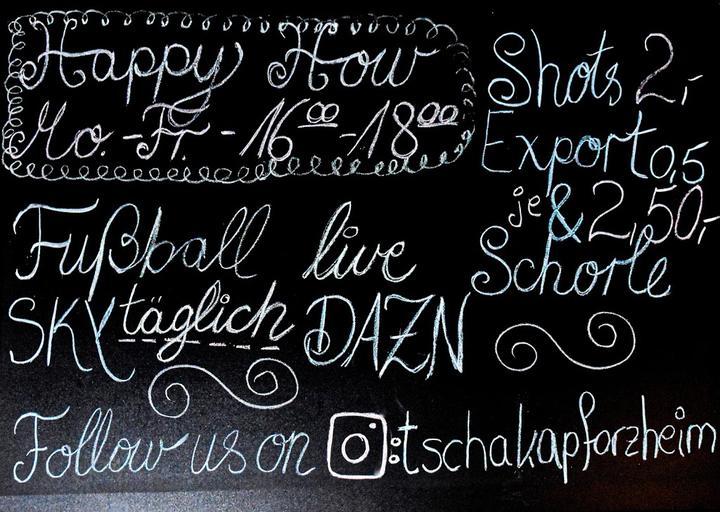 Happy How
Mo. - Fr. - 16⁰⁰ - 18⁰⁰
Shots 2,-
Export 0,5
je & 2,50,-
Schorle
Fußball live
SKY täglich DAZN
Follow us on : tschakapforzheim